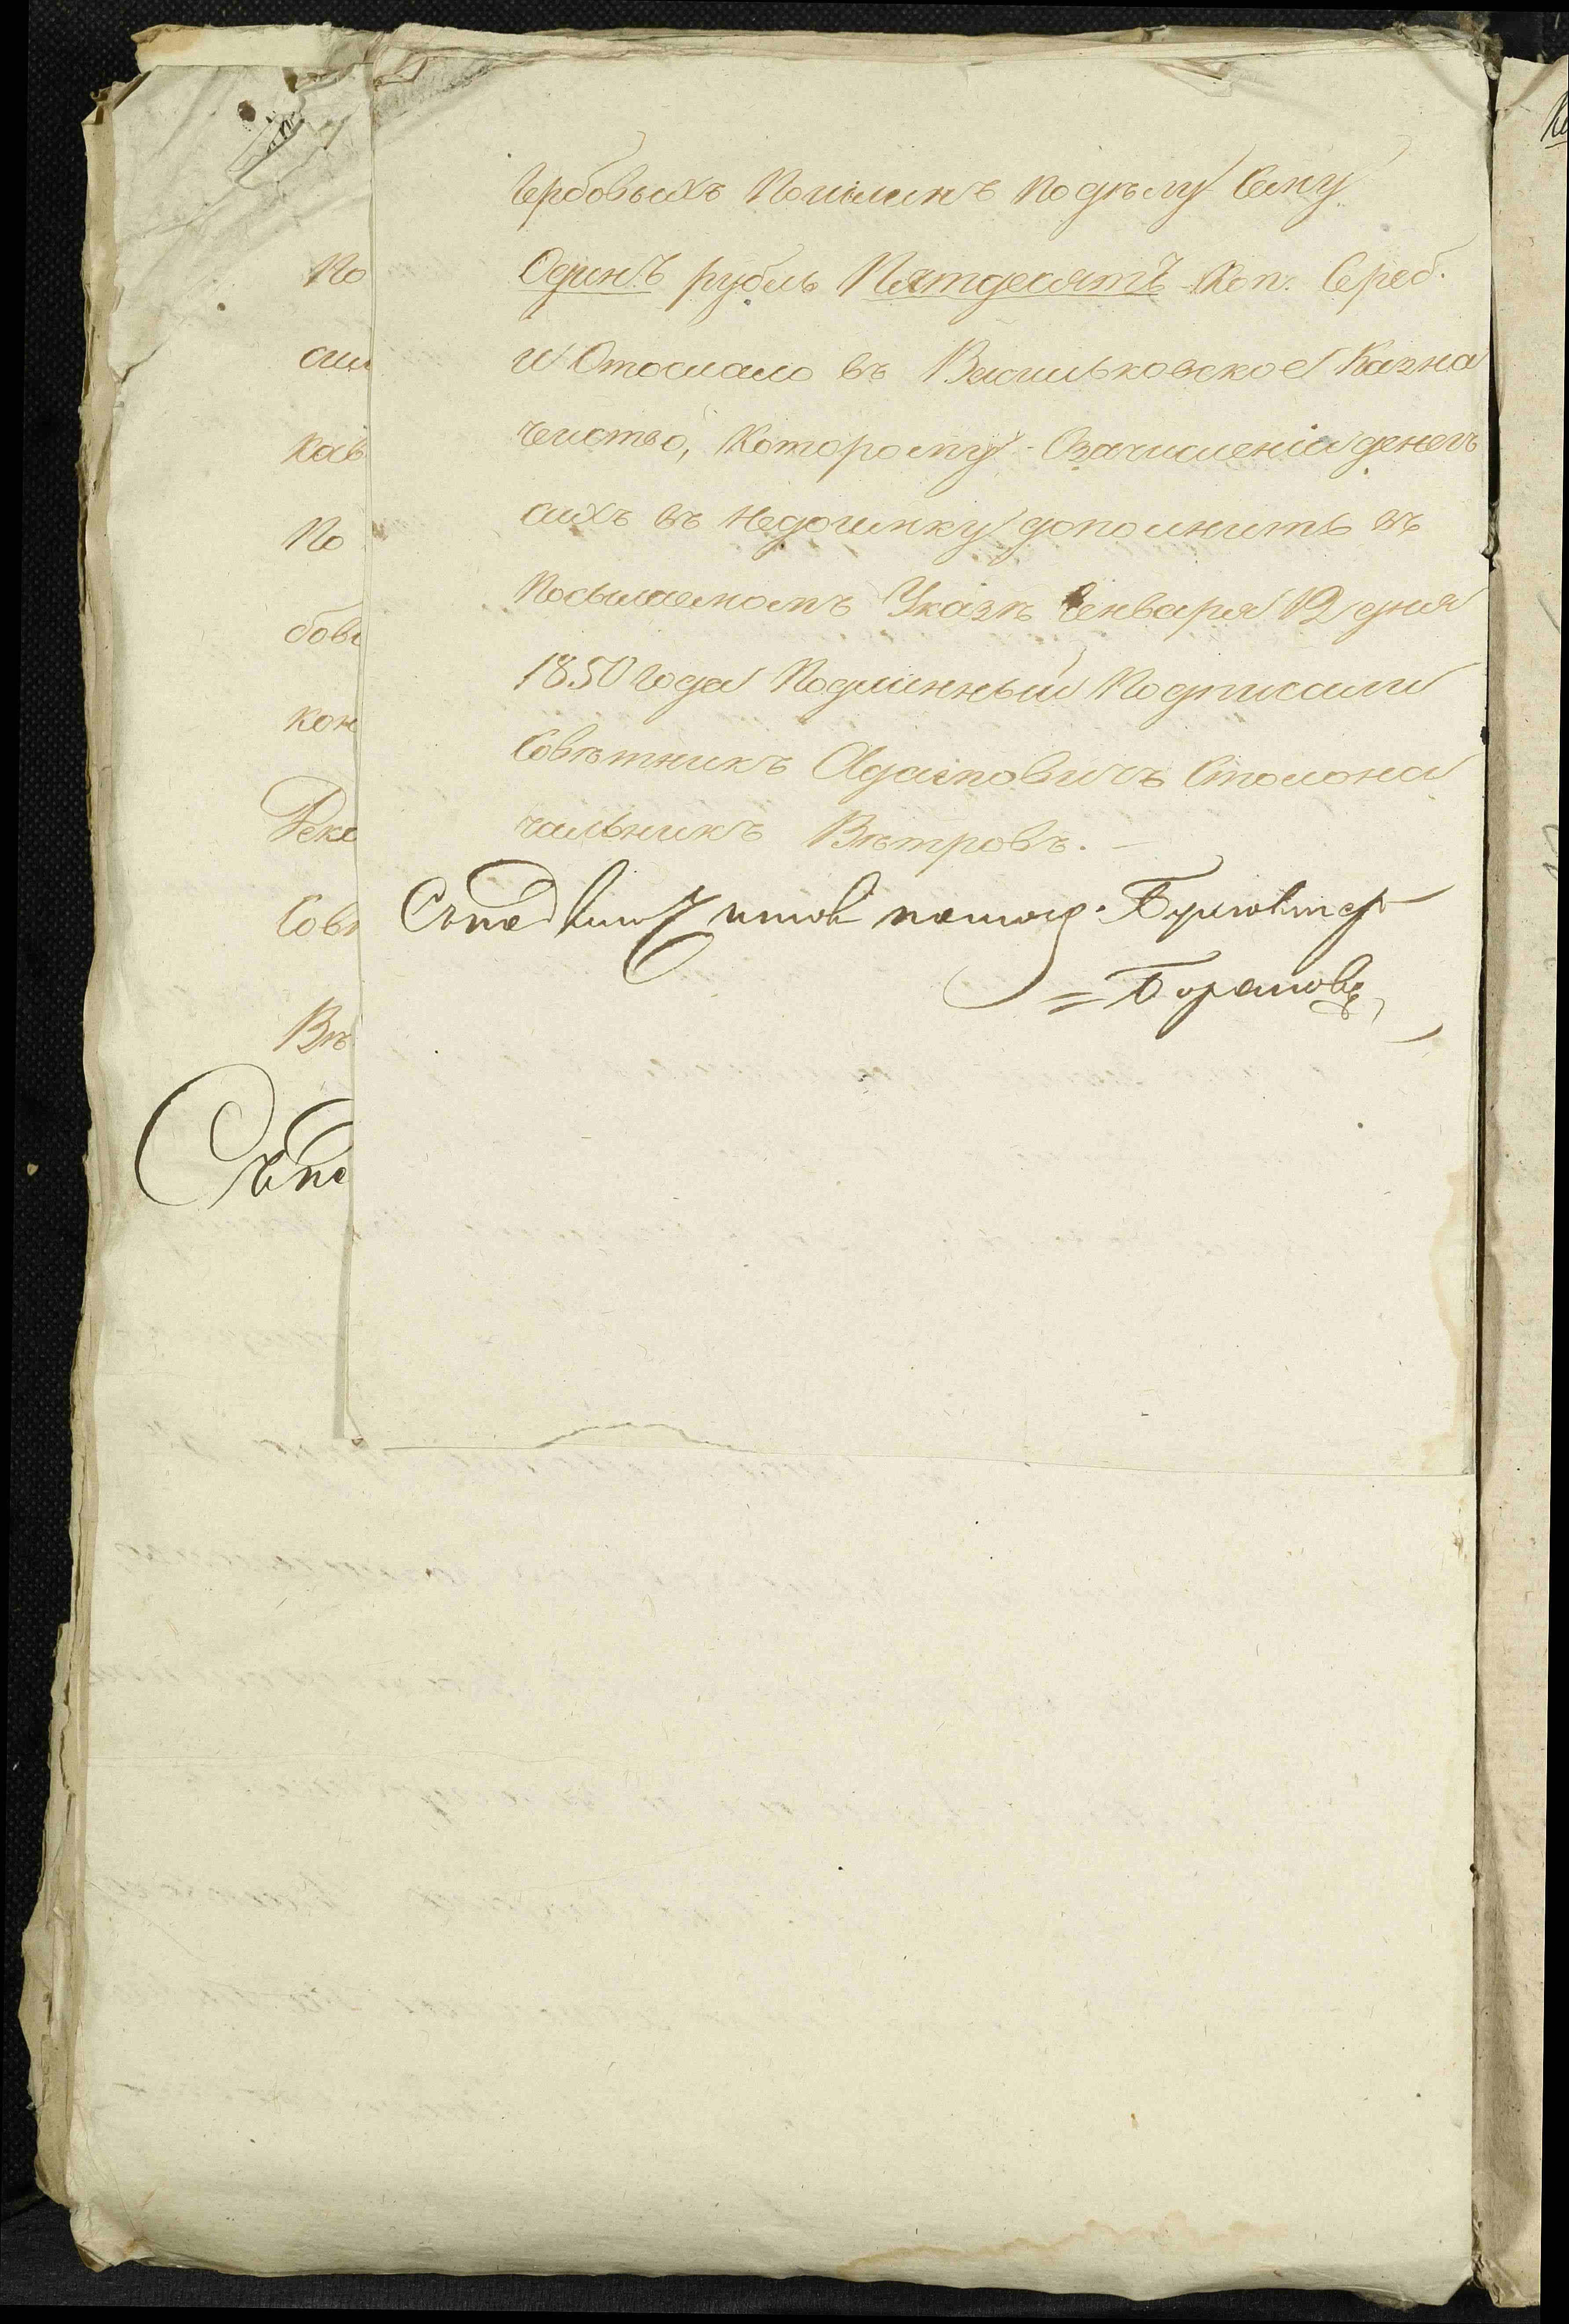 Гербовыхъ Пошлинъ Подѣлу Сему
Одинъ рубль Пятдесятъ Коп. Сереб.
и Отослало въ Васильковское Казна
чейство, Которому Озачисленіи денегъ
сихъ въ Недоимку дополнить въ
Посылаемомъ Указѣ Генваря 12 дня
1850 года Подлинный Подписали
Совѣтникъ Адамовичъ Столона
чальникъ Вѣтровъ.
Съпод
По
сил
Кав
По
бовы
кон
Дека
Совѣ
Вѣ
Съпо